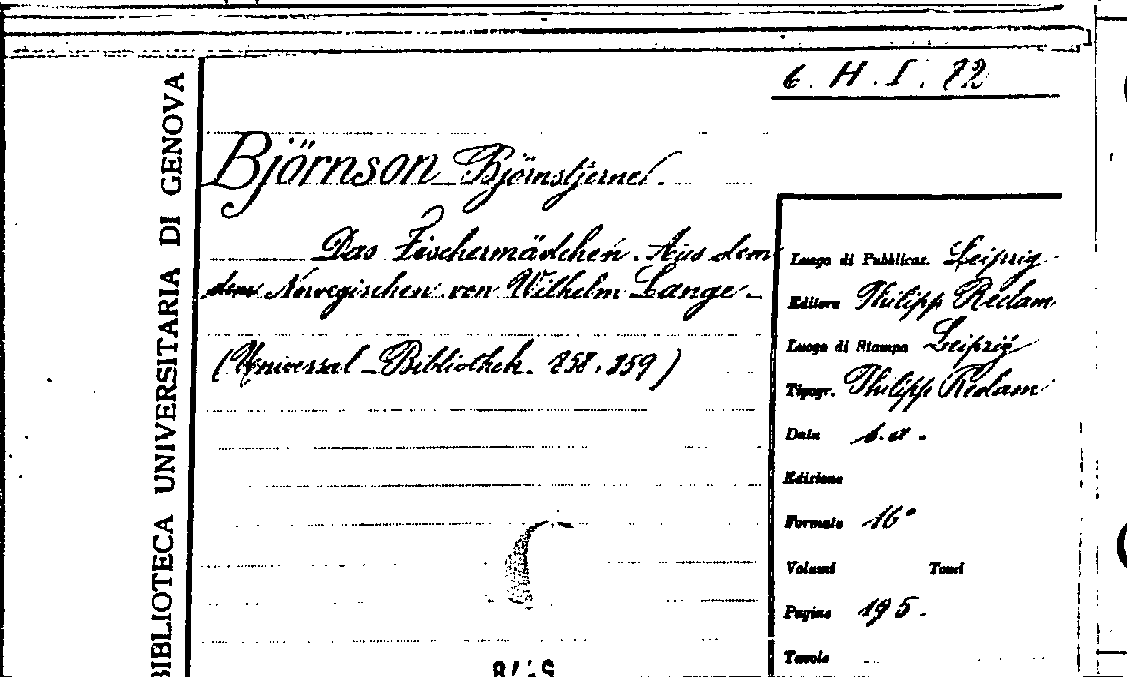 6. H. I. 72
BIBLIOTECA UNIVERSITARIA DI GENOVA
Björnson Björnstjerne.
Das Fischermädchen. Aus dem
dem Norvegischen von Wilhelm Lange -
(Universal - Bibliothek. 858. 859)
Luogo di Pubblicaz. Leipzig
Editore Philipp Reclam
Luogo di Stampa Leipzig
Tipogr. Philipp Reclam
Data s. a.
Edizione
Formato 16°
Volumi Tomi
Pagine 195.
Tavole